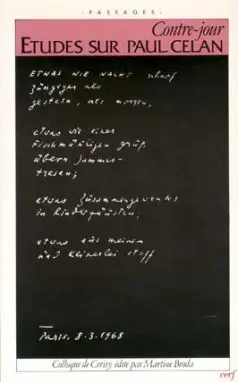 - PASSAGES -
Contre-jour
ETUDES SUR PAUL CELAN
ETWAS WIE NACHT, scharf
züngiger als
gestern, als morgen;
etwas wie einer
Fischmäuligen Gruß
übern Jammer-
tresen;
etwas Zusammengewehtes
in Kinderfäusten;
etwas aus meinem
und keinerlei Stoff
Paris, 8.3.1968
Colloque de Cerisy édité par Martine Broda
cerf